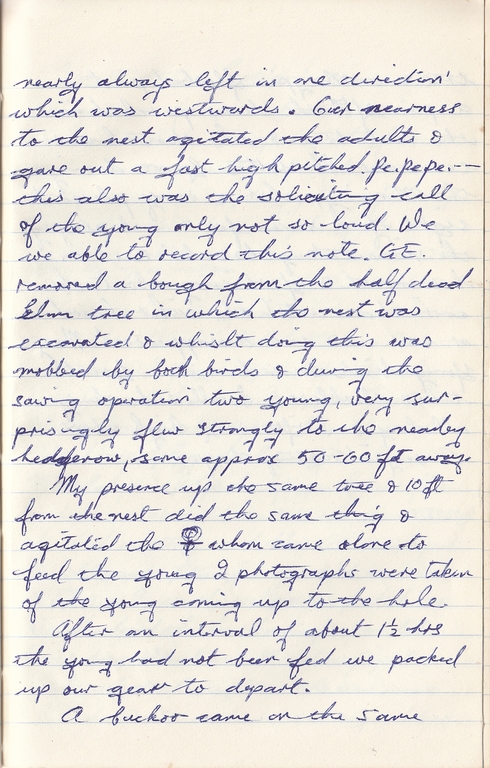 nearly always left in one direction
which was westwards. Our nearness
to the nest agitated the adults &
gave out a fast high pitched. Pe. pe pe. --
this also was the soliciting call
of the young only not so loud. We
we able to record this note. G.E.
removed a bough from the half dead
Elm tree in which the nest was
excavated & whislt doing this was
mobbed by both birds & during the
sawing operation two young, very sur-
prisingly flew strongly to the nearby
hedgerow, some approx 50-60 ft away.
My presence up the same tree & 10 ft
from the nest did the same thing &
agitated the ♀ whom came alone to
feed the young 2 photographs were taken
of the young coming up to the hole.
After an interval of about 1½ hrs
the young had not been fed we packed
up our gear to depart.
A cuckoo came on the same